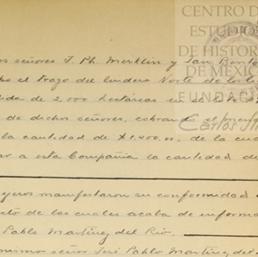 CENTRO DE
ESTUDIOS
DE HISTORIA
DE MÉXICO
FUNDACIÓN
os señores J. Ph. Merklin y San Benito
el trazo del lindero Norte de los
da de 2.000 hectáreas en
de dichos señores, cobrando
Carlos
la cantidad de $1.400.00, de la cual
ar a esta Compañía la cantidad de
yeros manifestaron su conformidad
to de las cuales acaba de informar
Pablo Martínez del Río.
mismo señor José Pablo Martínez del